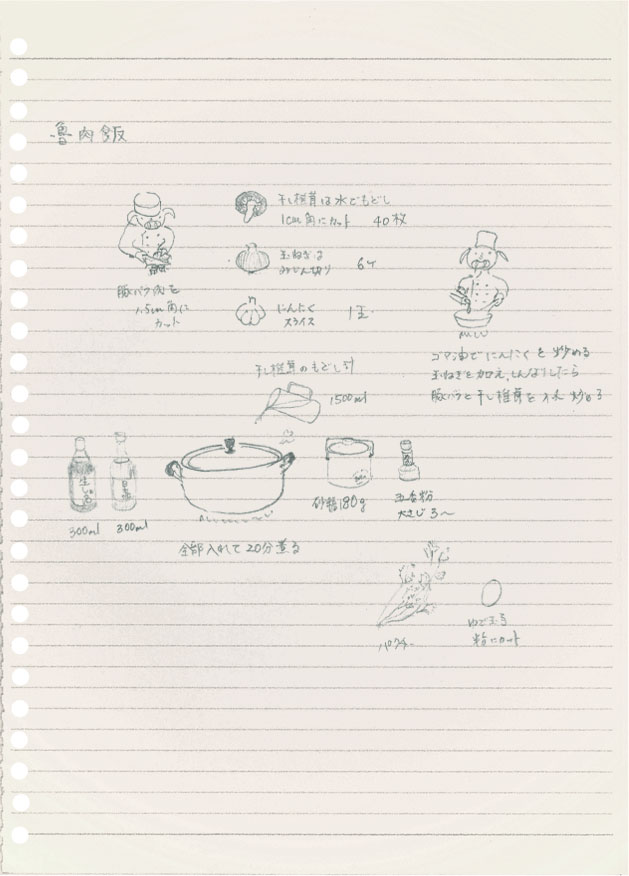 魯肉飯
豚バラ肉を
1.5cm角に
カット
干し椎茸は水でもどし
1cm角にカット 40枚
玉ねぎは
みじん切り 6ケ
にんにく
スライス 1玉
ゴマ油でにんにくを炒める
玉ねぎを加え、しんなりしたら
豚バラと干し椎茸を入れ炒める
干し椎茸のもどし汁
1500ml
300ml 300ml
砂糖180g
五香粉
大さじ3〜
全部入れて20分煮る
パクチー
ゆで玉子
半分にカット